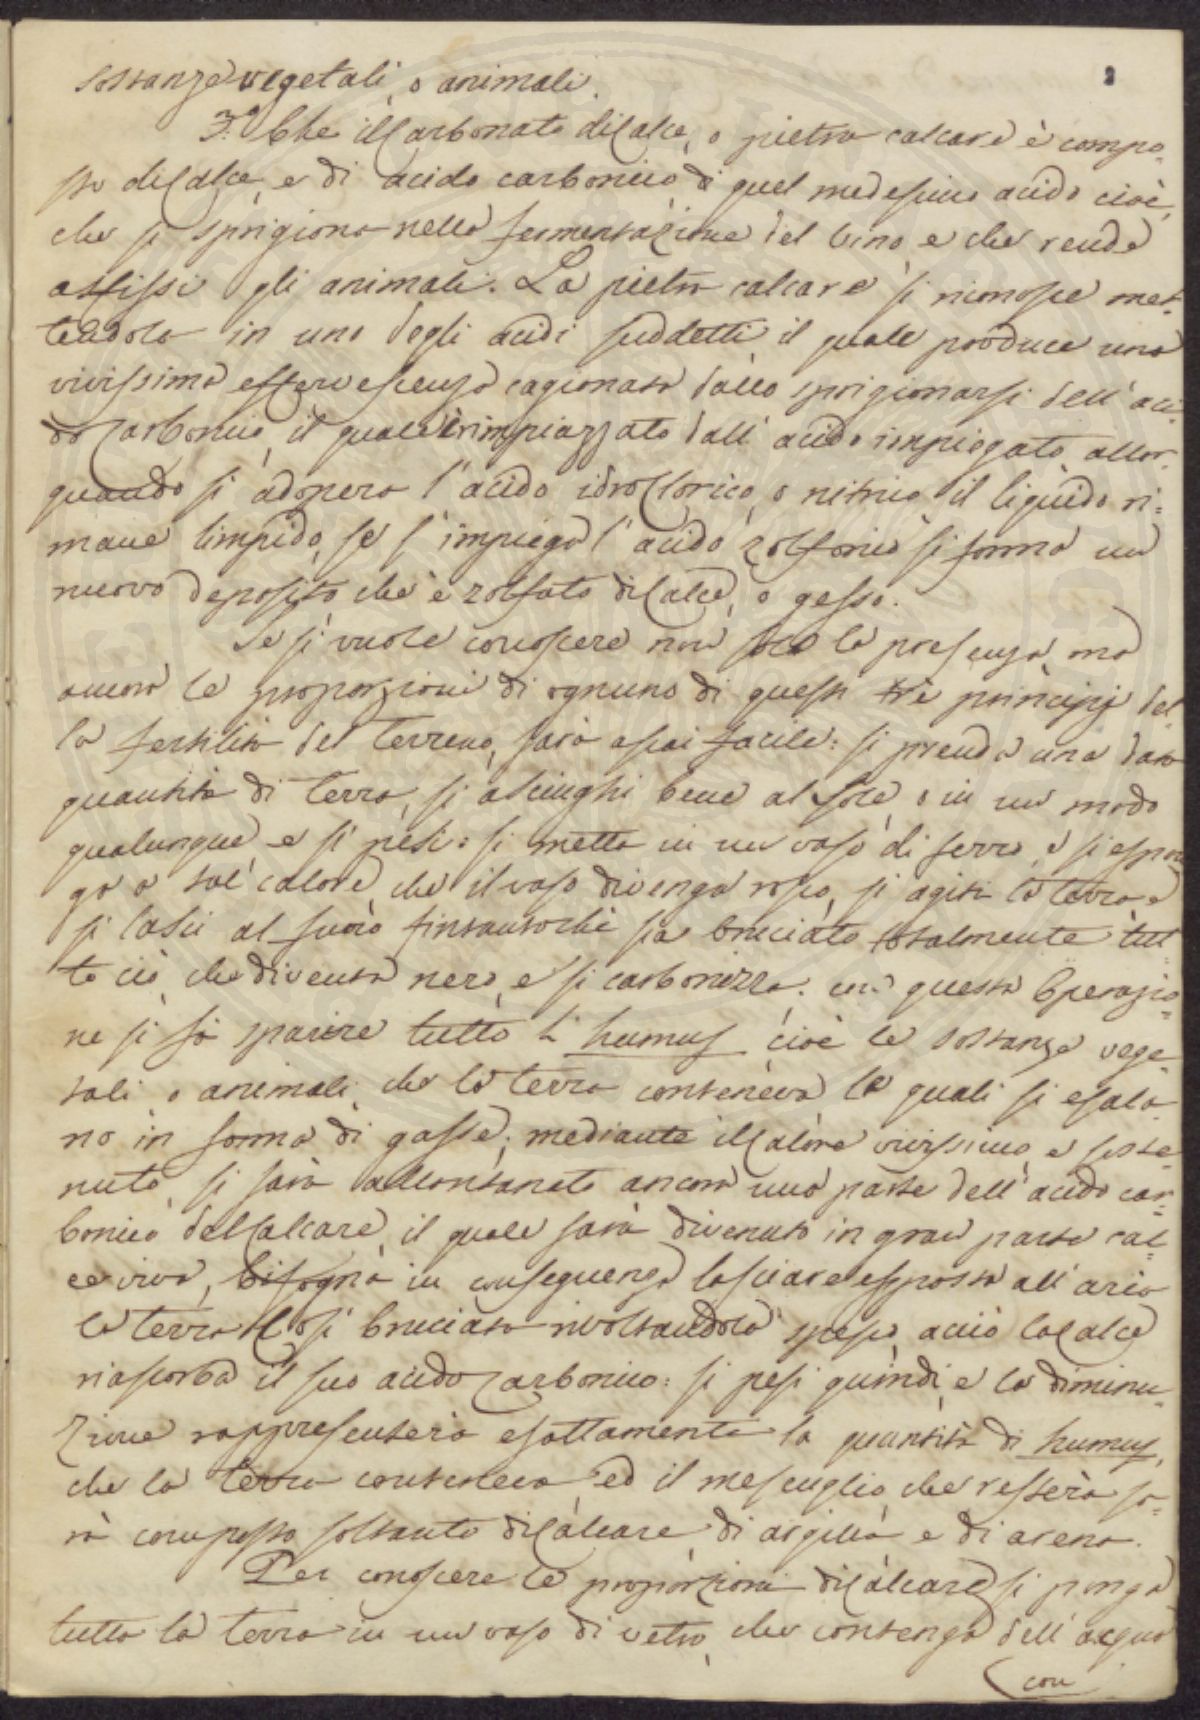 sostanze vegetali, o animali.
3.° Che il Carbonato di Calce, o pietra calcare è compo-
sto di Calce, e di acido carbonico di quel medesimo acido cioè,
che si sprigiona nella fermentazione del vino, e che rende
asfissi gli animali. La pietra calcare si riconosce met-
tendola in uno degli acidi suddetti il quale produce una
vivissima effervescenza cagionata dallo sprigionarsi dell'aci-
do Carbonico, il quale è rimpiazzato dall'acido impiegato allor-
quando si adopera l'acido idroclorico, o nitrico il liquido ri-
mane limpido, se s'impiega l'acido zolforico si forma un
nuovo deposito che è zolfato di Calce, o gesso.
Se si vuole conoscere non solo la presenza, ma
ancora le proporzioni di ognuno di questi tre principj del-
la fertilità del terreno, sarà assai facile: si prenda una data
quantità di terra, si asciughi bene al Sole, o in un modo
qualunque e si pesi: si metta in un vaso di ferro, e si espon-
ga a tal calore che il vaso divenga rosso, si agiti la terra e
si lasci al fuoco fintantochè sia bruciato totalmente tut-
to ciò che diventa nero, e si carbonizza: con questa Operazio-
ne si fà sparire tutto l'humus cioè le sostanze vege-
tali o animali che la terra conteneva le quali si esala-
no in forma di gasse; mediante il Calore vivissimo e soste-
nuto, si sarà allontanato ancora una parte dell'acido car-
bonico del Calcare il quale sarà divenuto in gran parte cal-
ce viva, bisogna in conseguenza lasciare esposta all'aria
la terra così bruciata rivoltandola spesso acciò la Calce
riassorba il suo acido Carbonico: si pesi quindi, e la diminu-
zione rappresenterà esattamente la quantità di humus,
che la terra conteneva ed il mescuglio che resterà sa-
rà composto soltanto di Calcare, di argilla e di arena.
Per conoscere le proporzioni di Calcare si ponga
tutta la terra in un vaso di vetro, che contenga dell'acqua
con